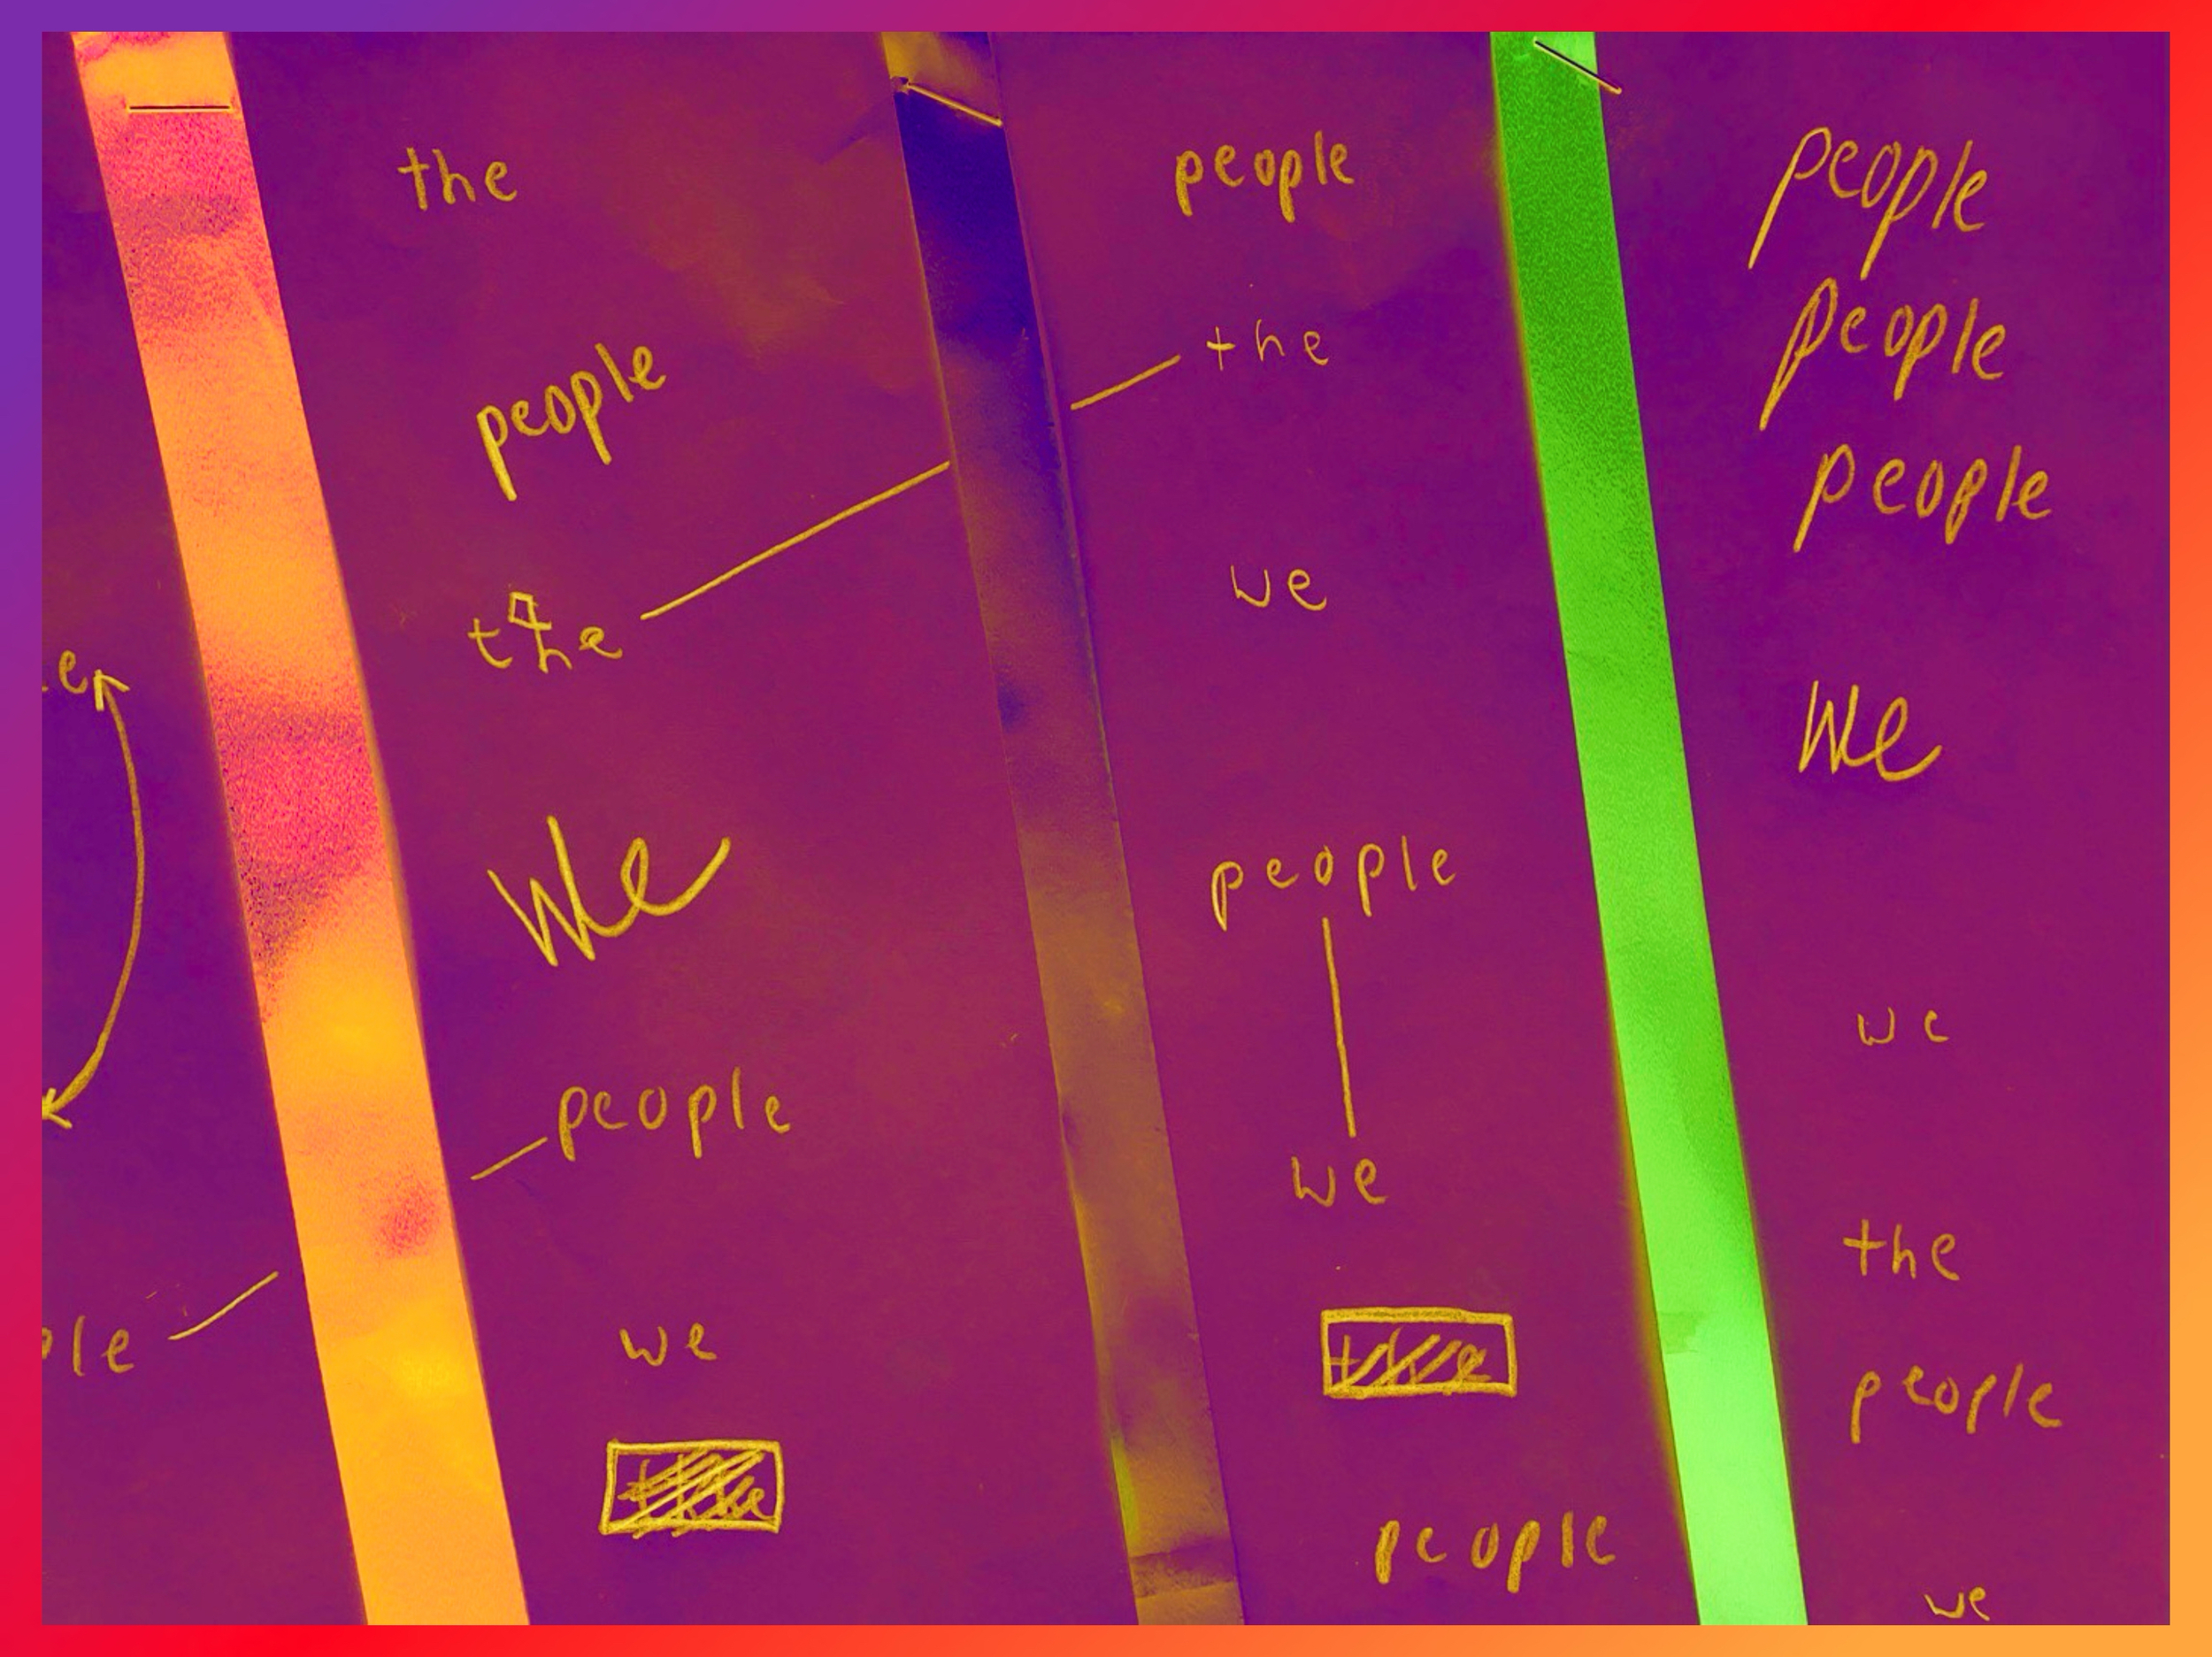 the
people
the
We
people
we
the
people
the
we
people
we
the
people
people
people
people
We
we
the
people
we